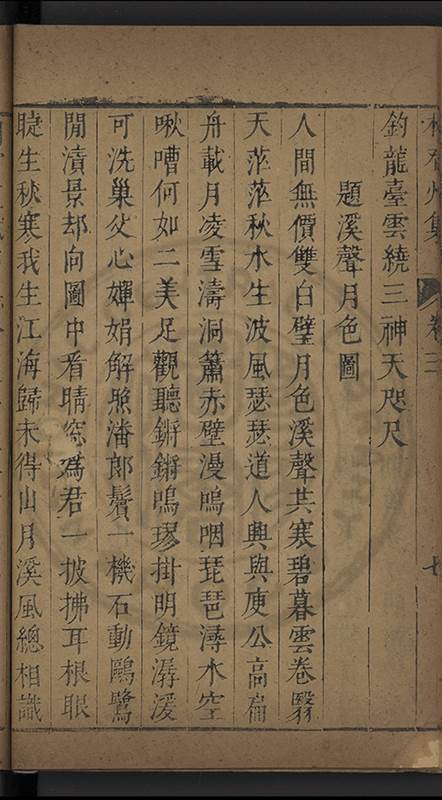 卷三
七
釣龍臺雲繞三神天咫尺
題溪聲月色圖
人間無價雙白璧月色溪聲共寒碧暮雲卷翳
天茫茫秋水生波風瑟瑟道人興與庾公高扁
舟載月凌雪濤洞簫赤壁漫嗚咽琵琶潯水空
啾嘈何如二美足觀聽鏘鏘鳴璆掛明鏡潺湲
可洗巢父心嬋娟解照潘郎鬢一機石動鷗鷺
閒漬景却向圖中看晴窓爲君一披拂耳根眼
睫生秋寒我生江海歸未得山月溪風總相識